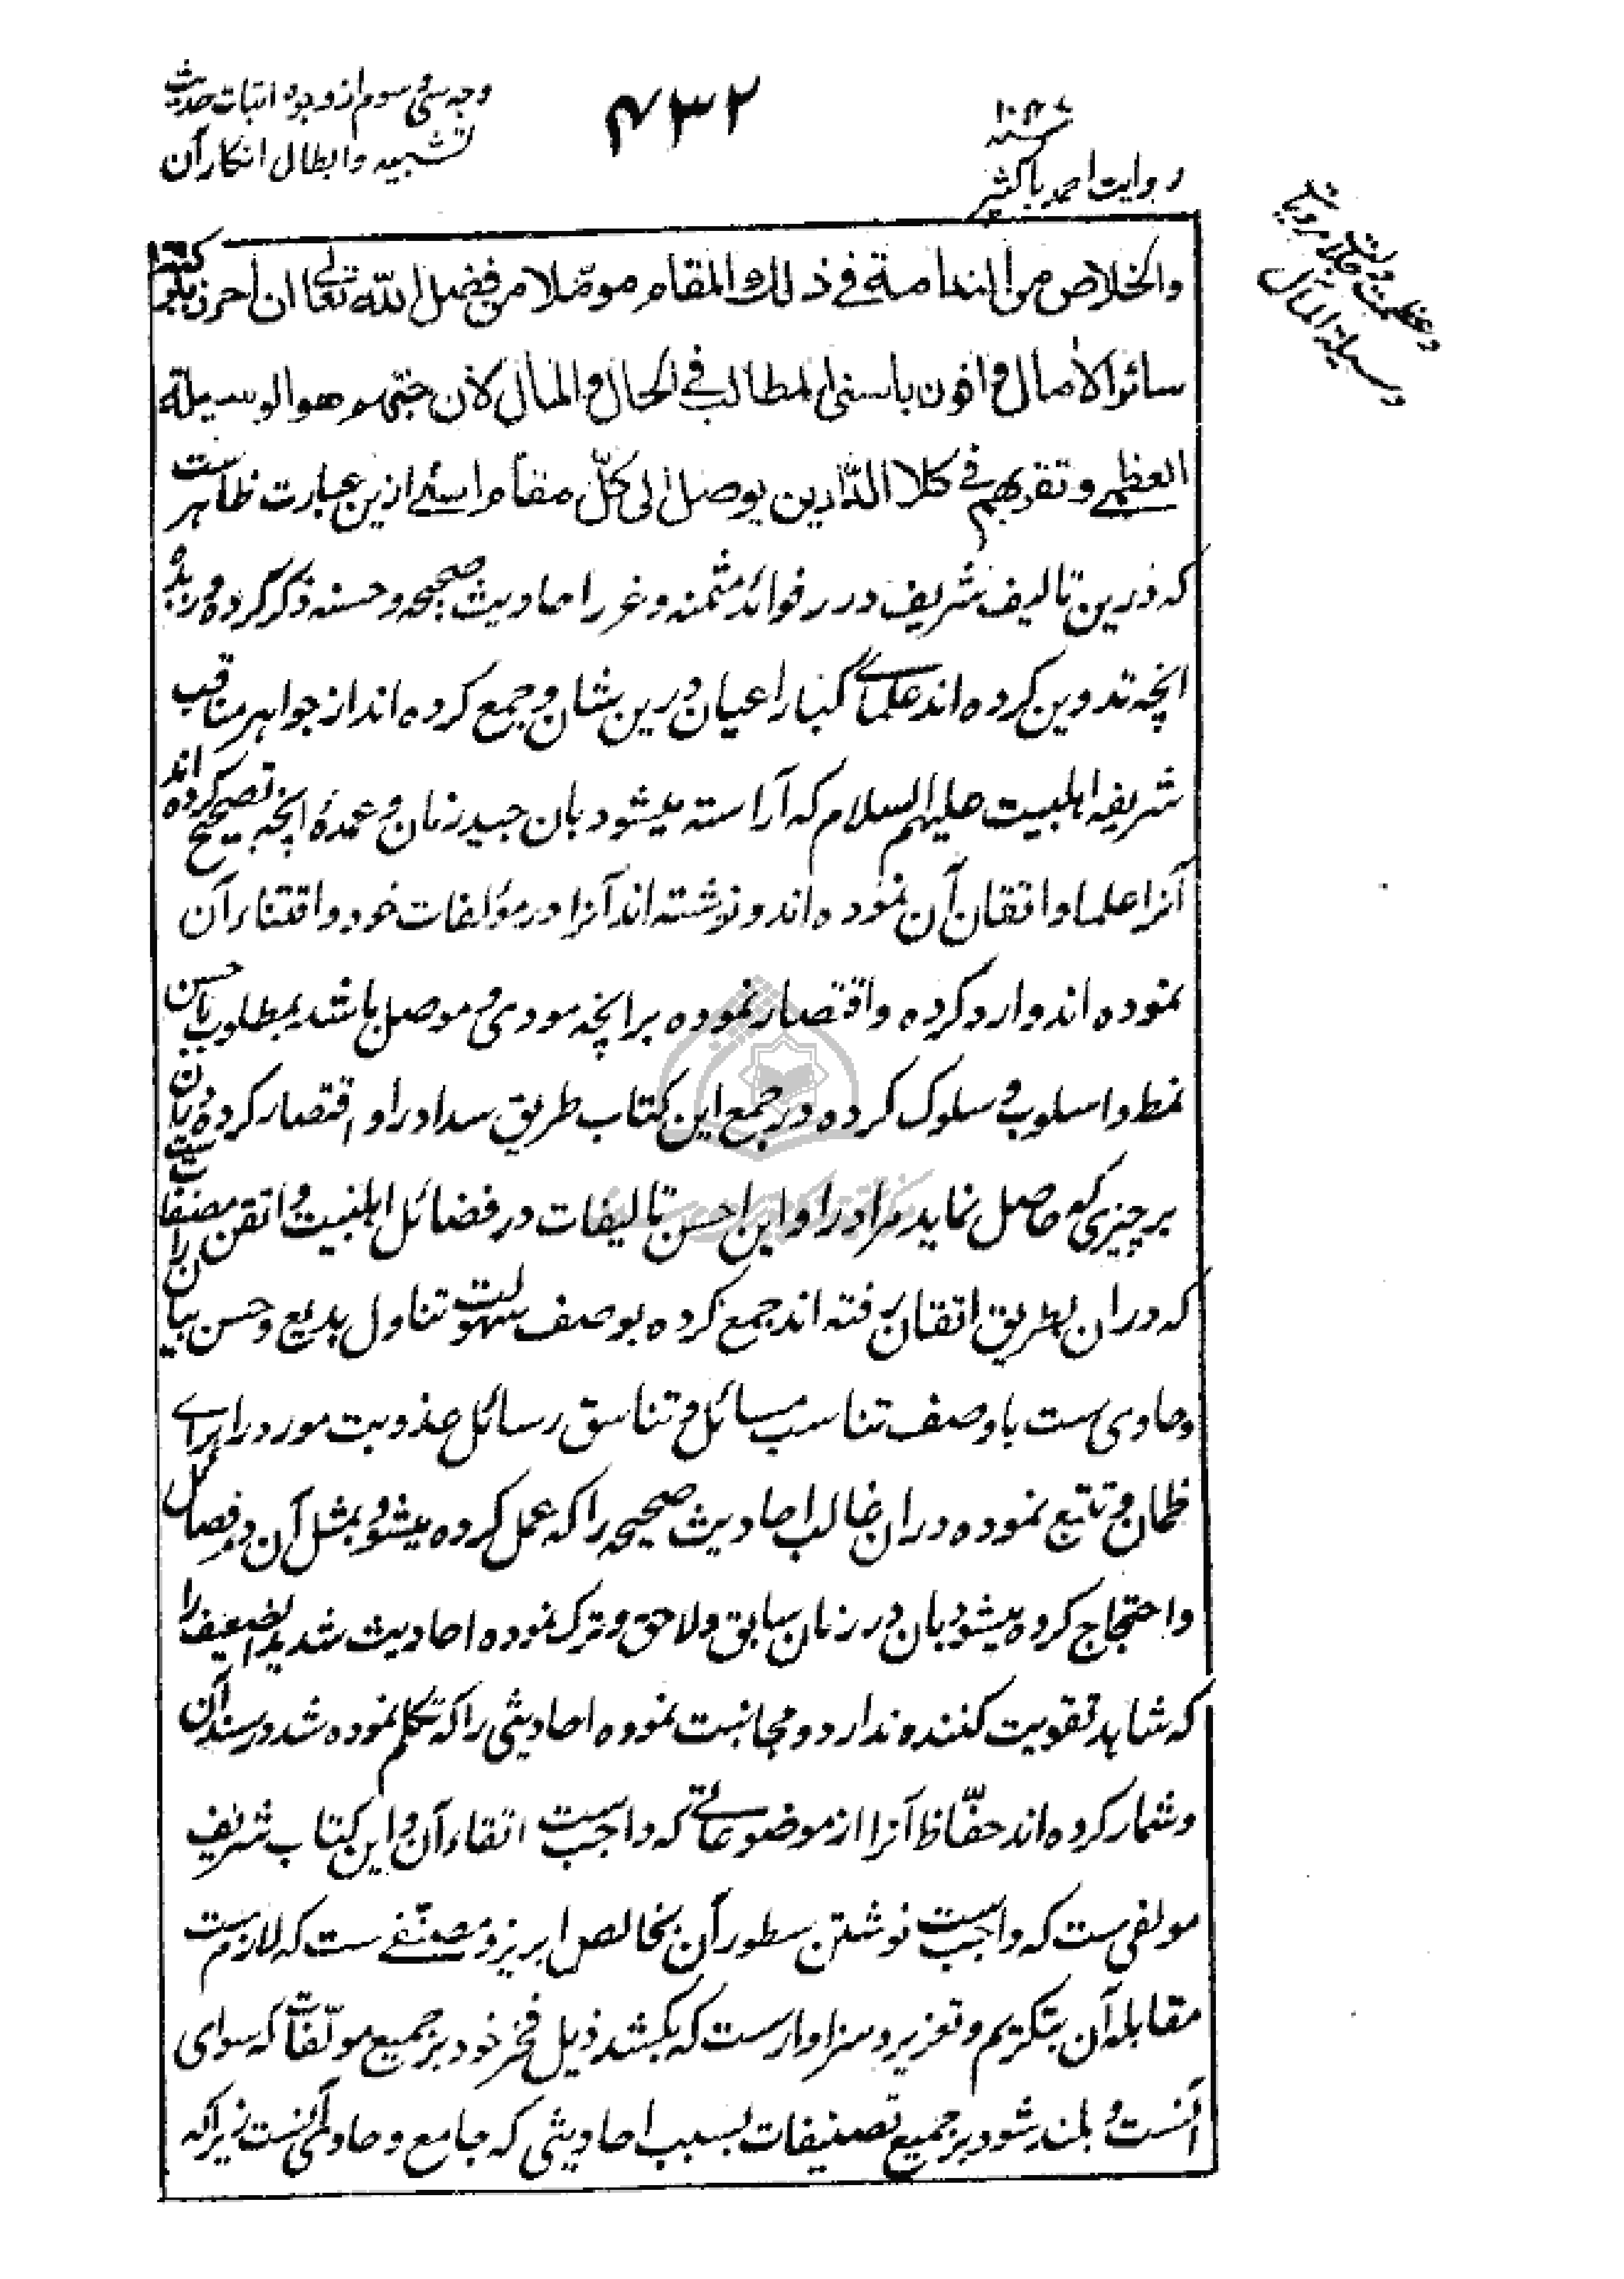 وجه سی و سوم از وجوه اثبات حدیث
تشبیه و ابطال انکار آن
۴۳۲
سنه ۱۰۴۷
روایت احمد باکثیر
وعظمت وجلالت مرویات
وسیلة المآل
والخلاص من الندامة فی ذلك المقام مومّلا من فضل الله تعالی ان احرز بلوغ
سائر الآمال و افوز باسنی المطالب فی الحال و المآل لان حبّهم هو الوسیلة
العظمی و تقربهم فی کلا الدّارین یوصل الی کلّ مقام اسنی ازین عبارت ظاهرست
که درین تالیف شریف درر فوائد مثمنه و غرر احادیث صحیحه و حسنه ذکر کرده و زبده
انچه تدوین کرده اند علمای کبار اعیان درین شان و جمع کرده اند از جواهر مناقب
شریفه اهلبیت علیهم السلام که آراسته میشود بان جید زمان و عمدهٔ انچه تصحیح کرده اند
آنرا علما و اتقان آن نموده اند و نوشته اند آنرا در مؤلفات خود و اقتناء آن
نموده اند وارد کرده و اقتصار نموده بر انچه مودی و موصل باشد بمطلوب باحسن
نمط و اسلوب و سلوک کرده در جمع این کتاب طریق سداد را و اقتصار کرده دران
بر چیزی که حاصل نماید مراد را و این احسن تالیفات در فضائل اهلبیت و اتقن مصنفات ست
که دران بطریق اتقان رفته اند جمع کرده بوصف سهولت تناول بدیع و حسن بیان را
و حاوی ست با وصف تناسب مسائل و تناسق رسائل عذوبت مورد را برای
ظمآن و تتبع نموده دران غالب احادیث صحیحه را که عمل کرده میشود بمثل آن در فضائل
و احتجاج کرده میشود بان در زمان سابق و لاحق و ترک نموده احادیث شدید الضعف را
که شاهد تقویت کننده ندارد و مجانبت نموده احادیثی را که تکلم نموده شد در سند آن
و شمار کرده اند حفّاظ آنرا از موضوعاتی که واجب ست اتقاء آن و این کتاب شریف
مولفی ست که واجب ست نوشتن سطور آن بخالص ابریز و مصنّفی ست که لازم ست
مقابله آن بتکریم و تعزیز و سزاوارست که بکشد ذیل فخر خود بر جمیع مولّفات که سوای
آنست و بلند شود بر جمیع تصنیفات بسبب احادیثی که جامع و حاوی آنست زیرا که